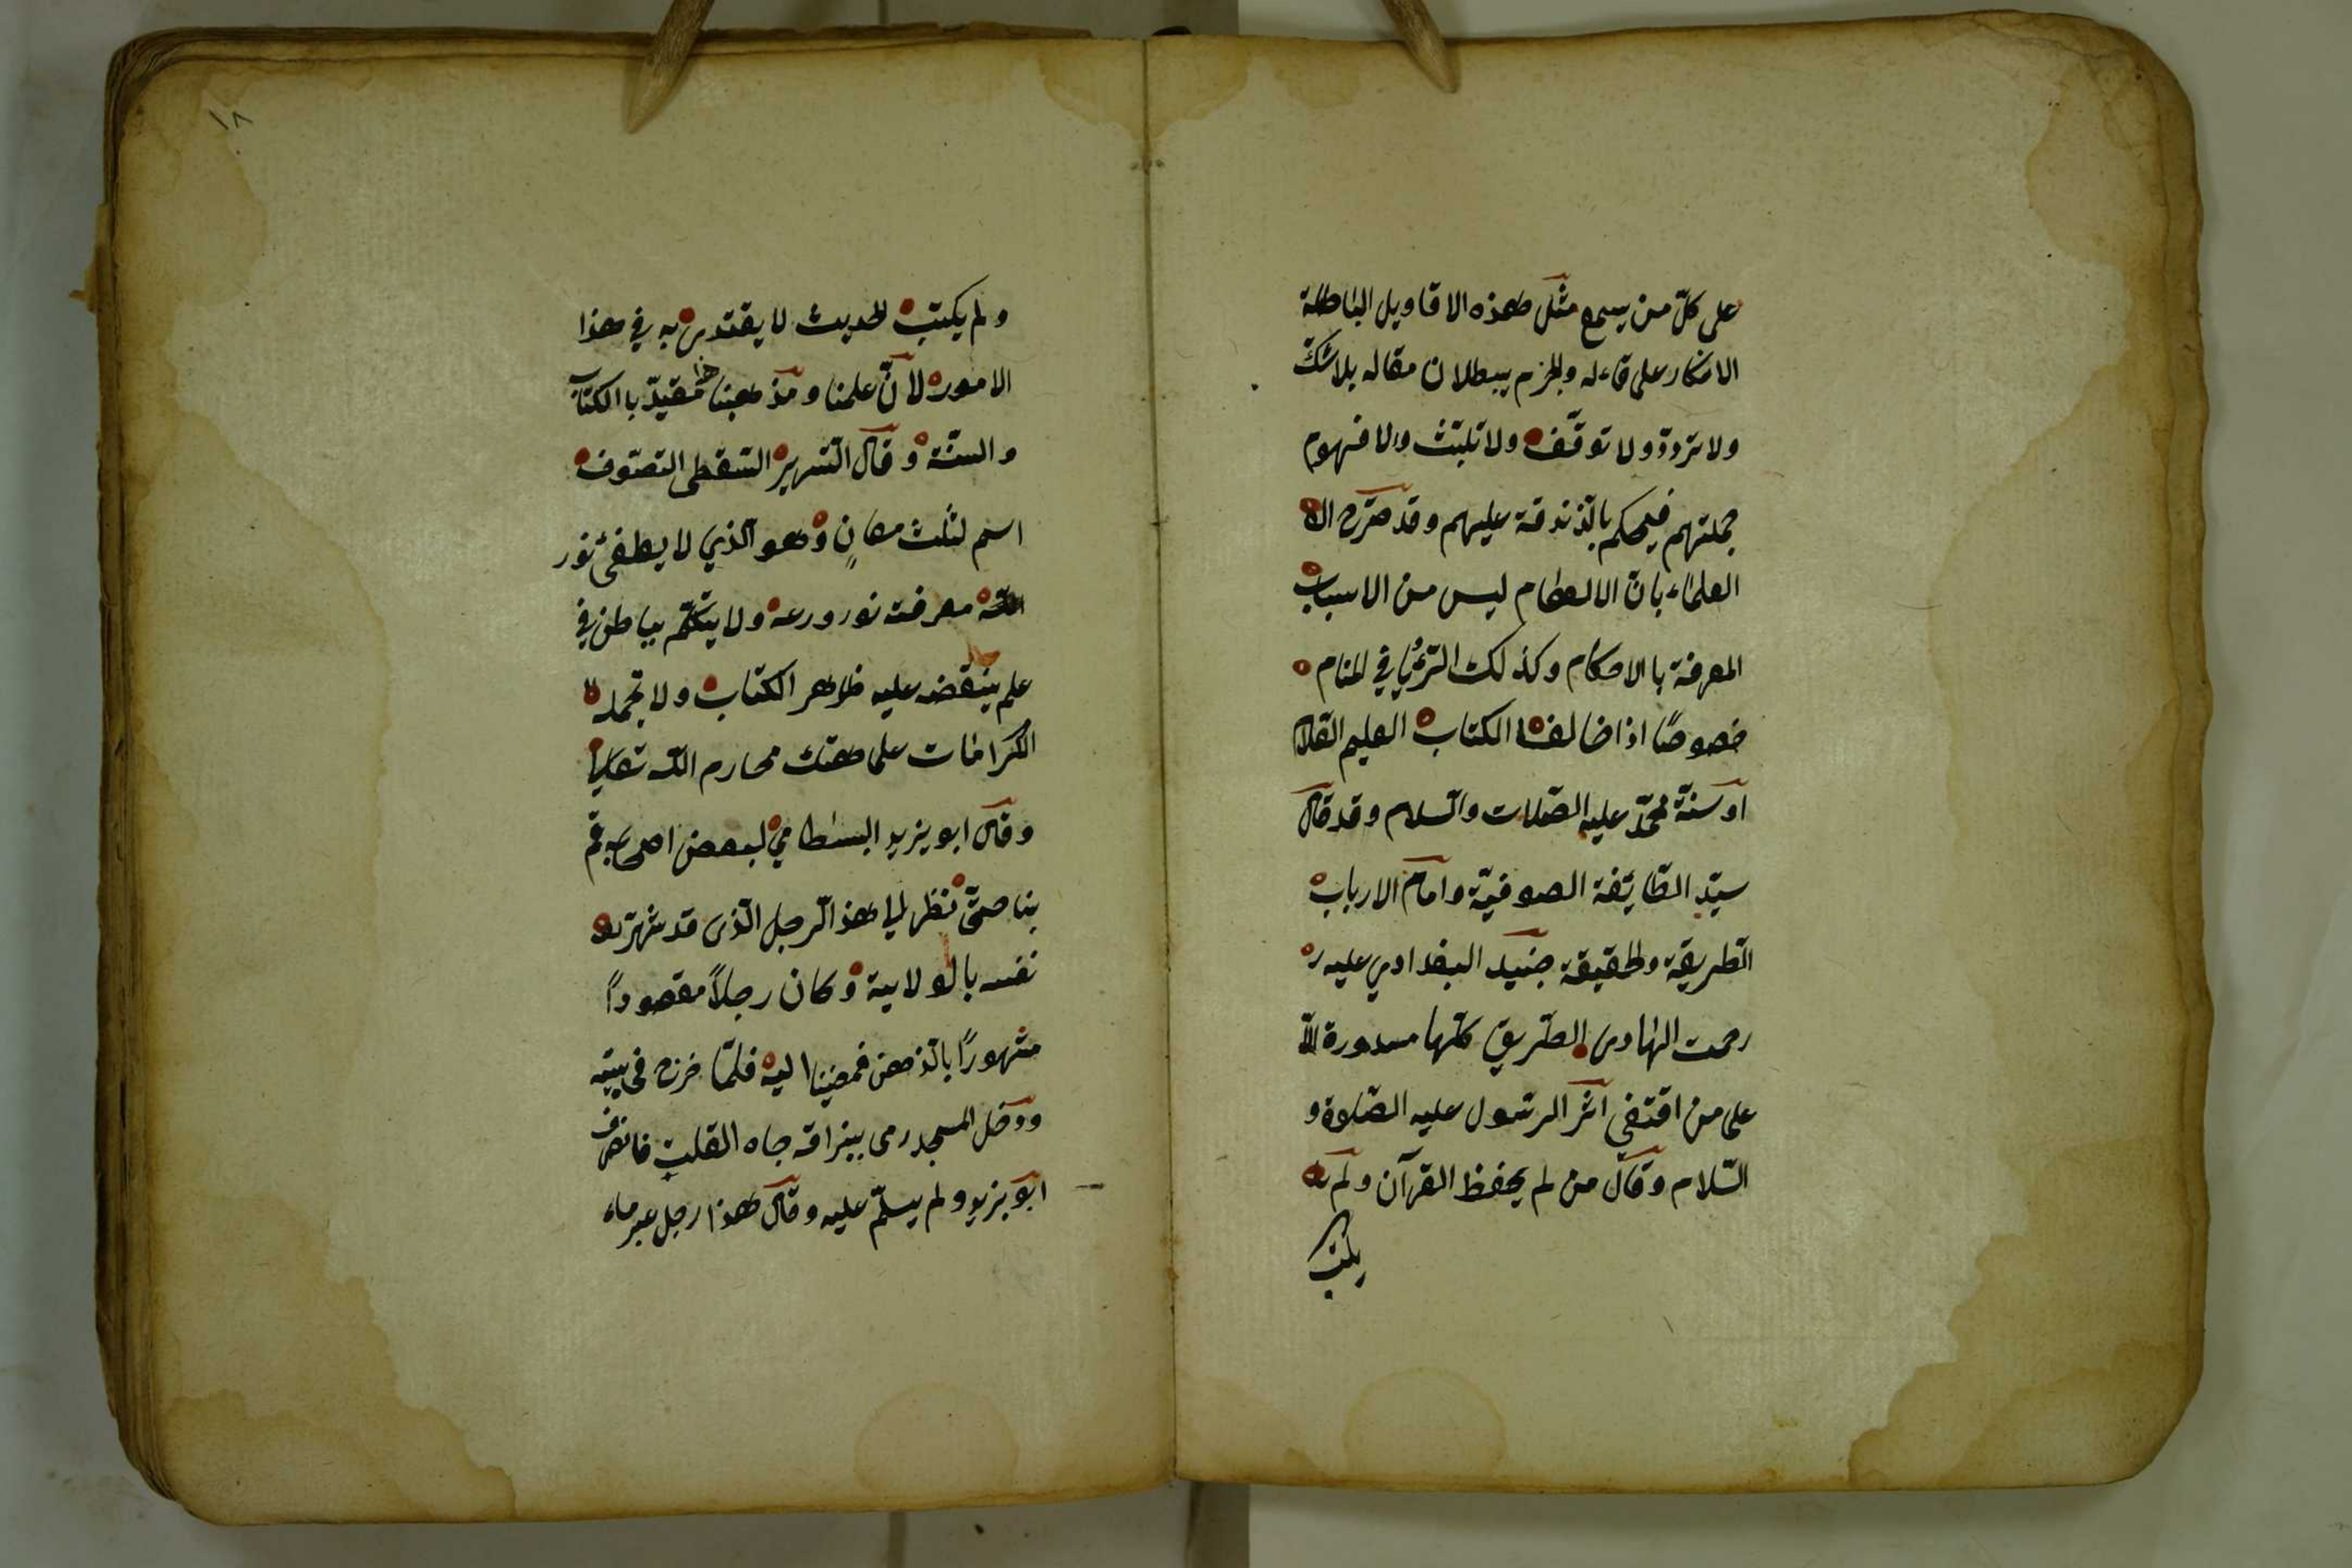 على كلّ من يسمع مثل هذه الاقاويل الباطلة
الانكار على قاءله والجزم ببطلان مقاله بلا شكّ
ولا تردّد ولا توقّف ولا تلبّث والا فهوم
جملتهم فيحكم بالذندقة عليهم وقد صرّح الا
العلماء بان الالهام ليس من الاسباب
المعرفة با الاحكام وكذلك الرّؤيا في المنام
خصوصًا اذا خالف الكتاب العليم العلا
او سنّة محمّد عليه الصّلات والسلام وقد قال
سيّد الطّائفة الصوفيّة وامام الارباب
الطريقة والحقيقة جنيد البغدادي عليه ر
رحمت الهادى الطّريق كلّها مسدورة الّا
على من اقتفى اثر الرسول عليه الصّلوة و
السّلام وقال من لم يحفظ القرآن ولم يك
يكتب
١٨
ولم يكتب الحديث لا يقتدى به في هذا
الامور لانّ علمنا ومذهبنا هذا مقيّد با الكتاب
والسنّة وقال السّرير السّقطى التصّوف
اسم لثلث معانٍ وهو الّذي لا يطفئ نور
معرفته نور ورعه ولا يتكلّم بباطن في
علم ينقضه عليه ظاهر الكتاب ولا تحمله
الكرامات على هتك محارم اللّه تعالى
وقال ابو يزيد البسطامي لبعض اصحابه قم
بنا حتّى ننظر الى هذ الرّجل الّذى قد شهّر
نفسه بالولاية وكان رجلاً مقصوداً
مشهورًا بالذهن فمضينا اليه فلمّا خرج فى بيته
ودخل المسجد رمى ببزاقه جاه القلب فانصرف
ابو يزيد ولم يسلّم عليه وقال هذا رجل غير ماء